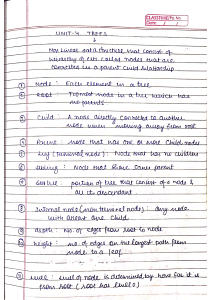 CLASSMATE Pg. No.
Date / /
UNIT-4 TREES
Non linear data structure, that consist of
hierarchy of nodes called nodes that are
connected in a parent child relationship
① Node : Each element in a tree
② Root : Topmost node in a tree which has
no parents
③ Child : A node directly connected to another
node when moving away from root
④ Parent node that has one or more child nodes
⑤ Leaf (terminal node) : Node that has no children
⑥ Sibling : Nodes that share same parent
⑦ Subtree : portion of tree that consist of a node &
all its descendant
⑧ Internal node (non terminal node) : any node
with atleast one child
⑨ depth : No. of edges from root to node
⑩ height : no. of edges on the longest path from
node to a leaf
⑪ level : level of node is determined by how far it is
from root (root has level 0)